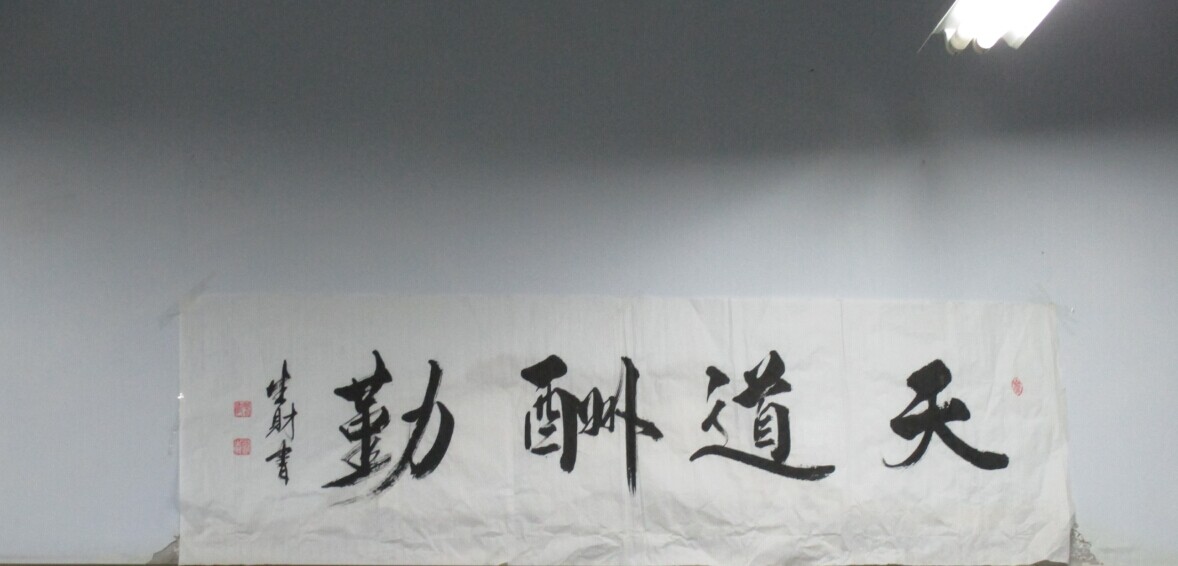 天道酬勤
生财书